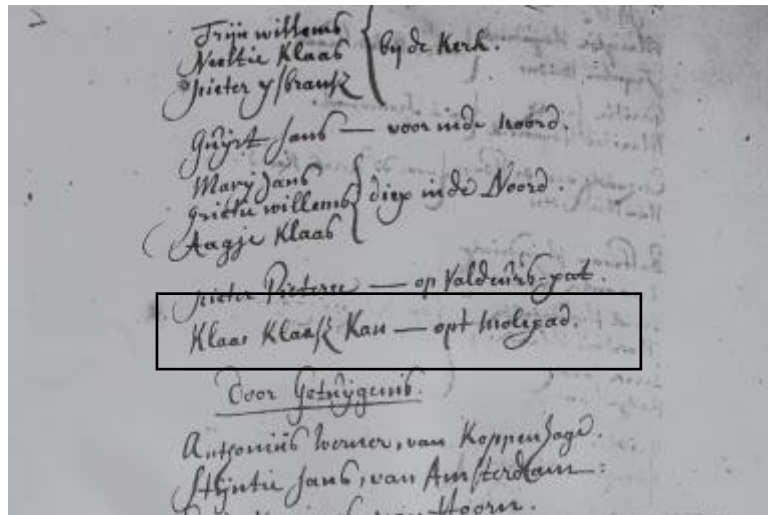 Trijn willems
Neeltie Klaas
pieter ysbrantz
bij de Kerk.
Guijrt Jans — voor inde noord.
Marij Jans
grietie willems
Aagje Klaas
diep inde Noord.
pieter Pieterse — op Valdeurs-pat.
Klaas Klaasz Kan — opt molepad.
Door Getuijgenis.
Antonius Wermer, van Koppenhage.
Stijntie Jans, van Amsterdam
van Hoorn.